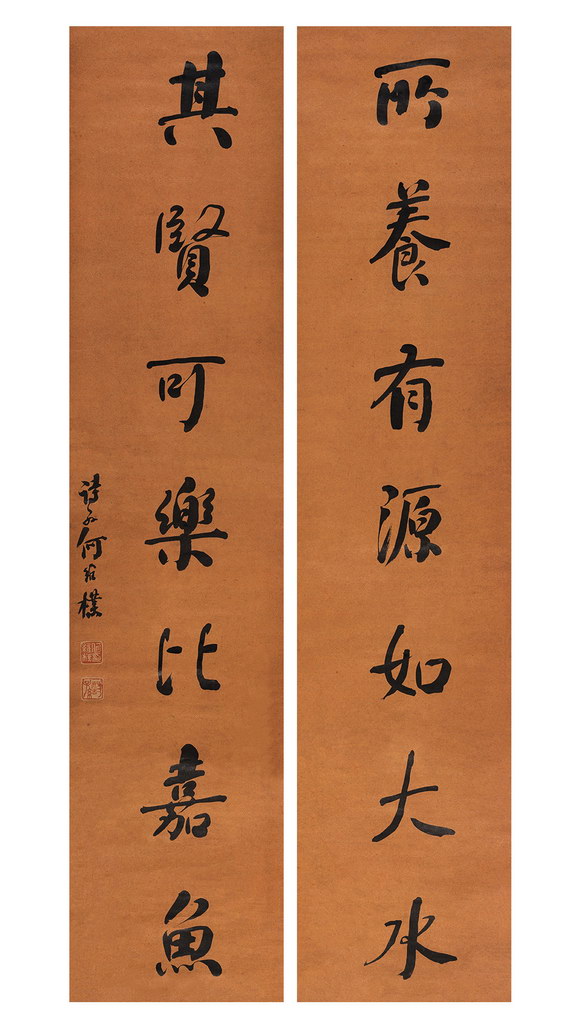 所養有源如大水
其賢可樂比嘉魚
詩孫何維樸